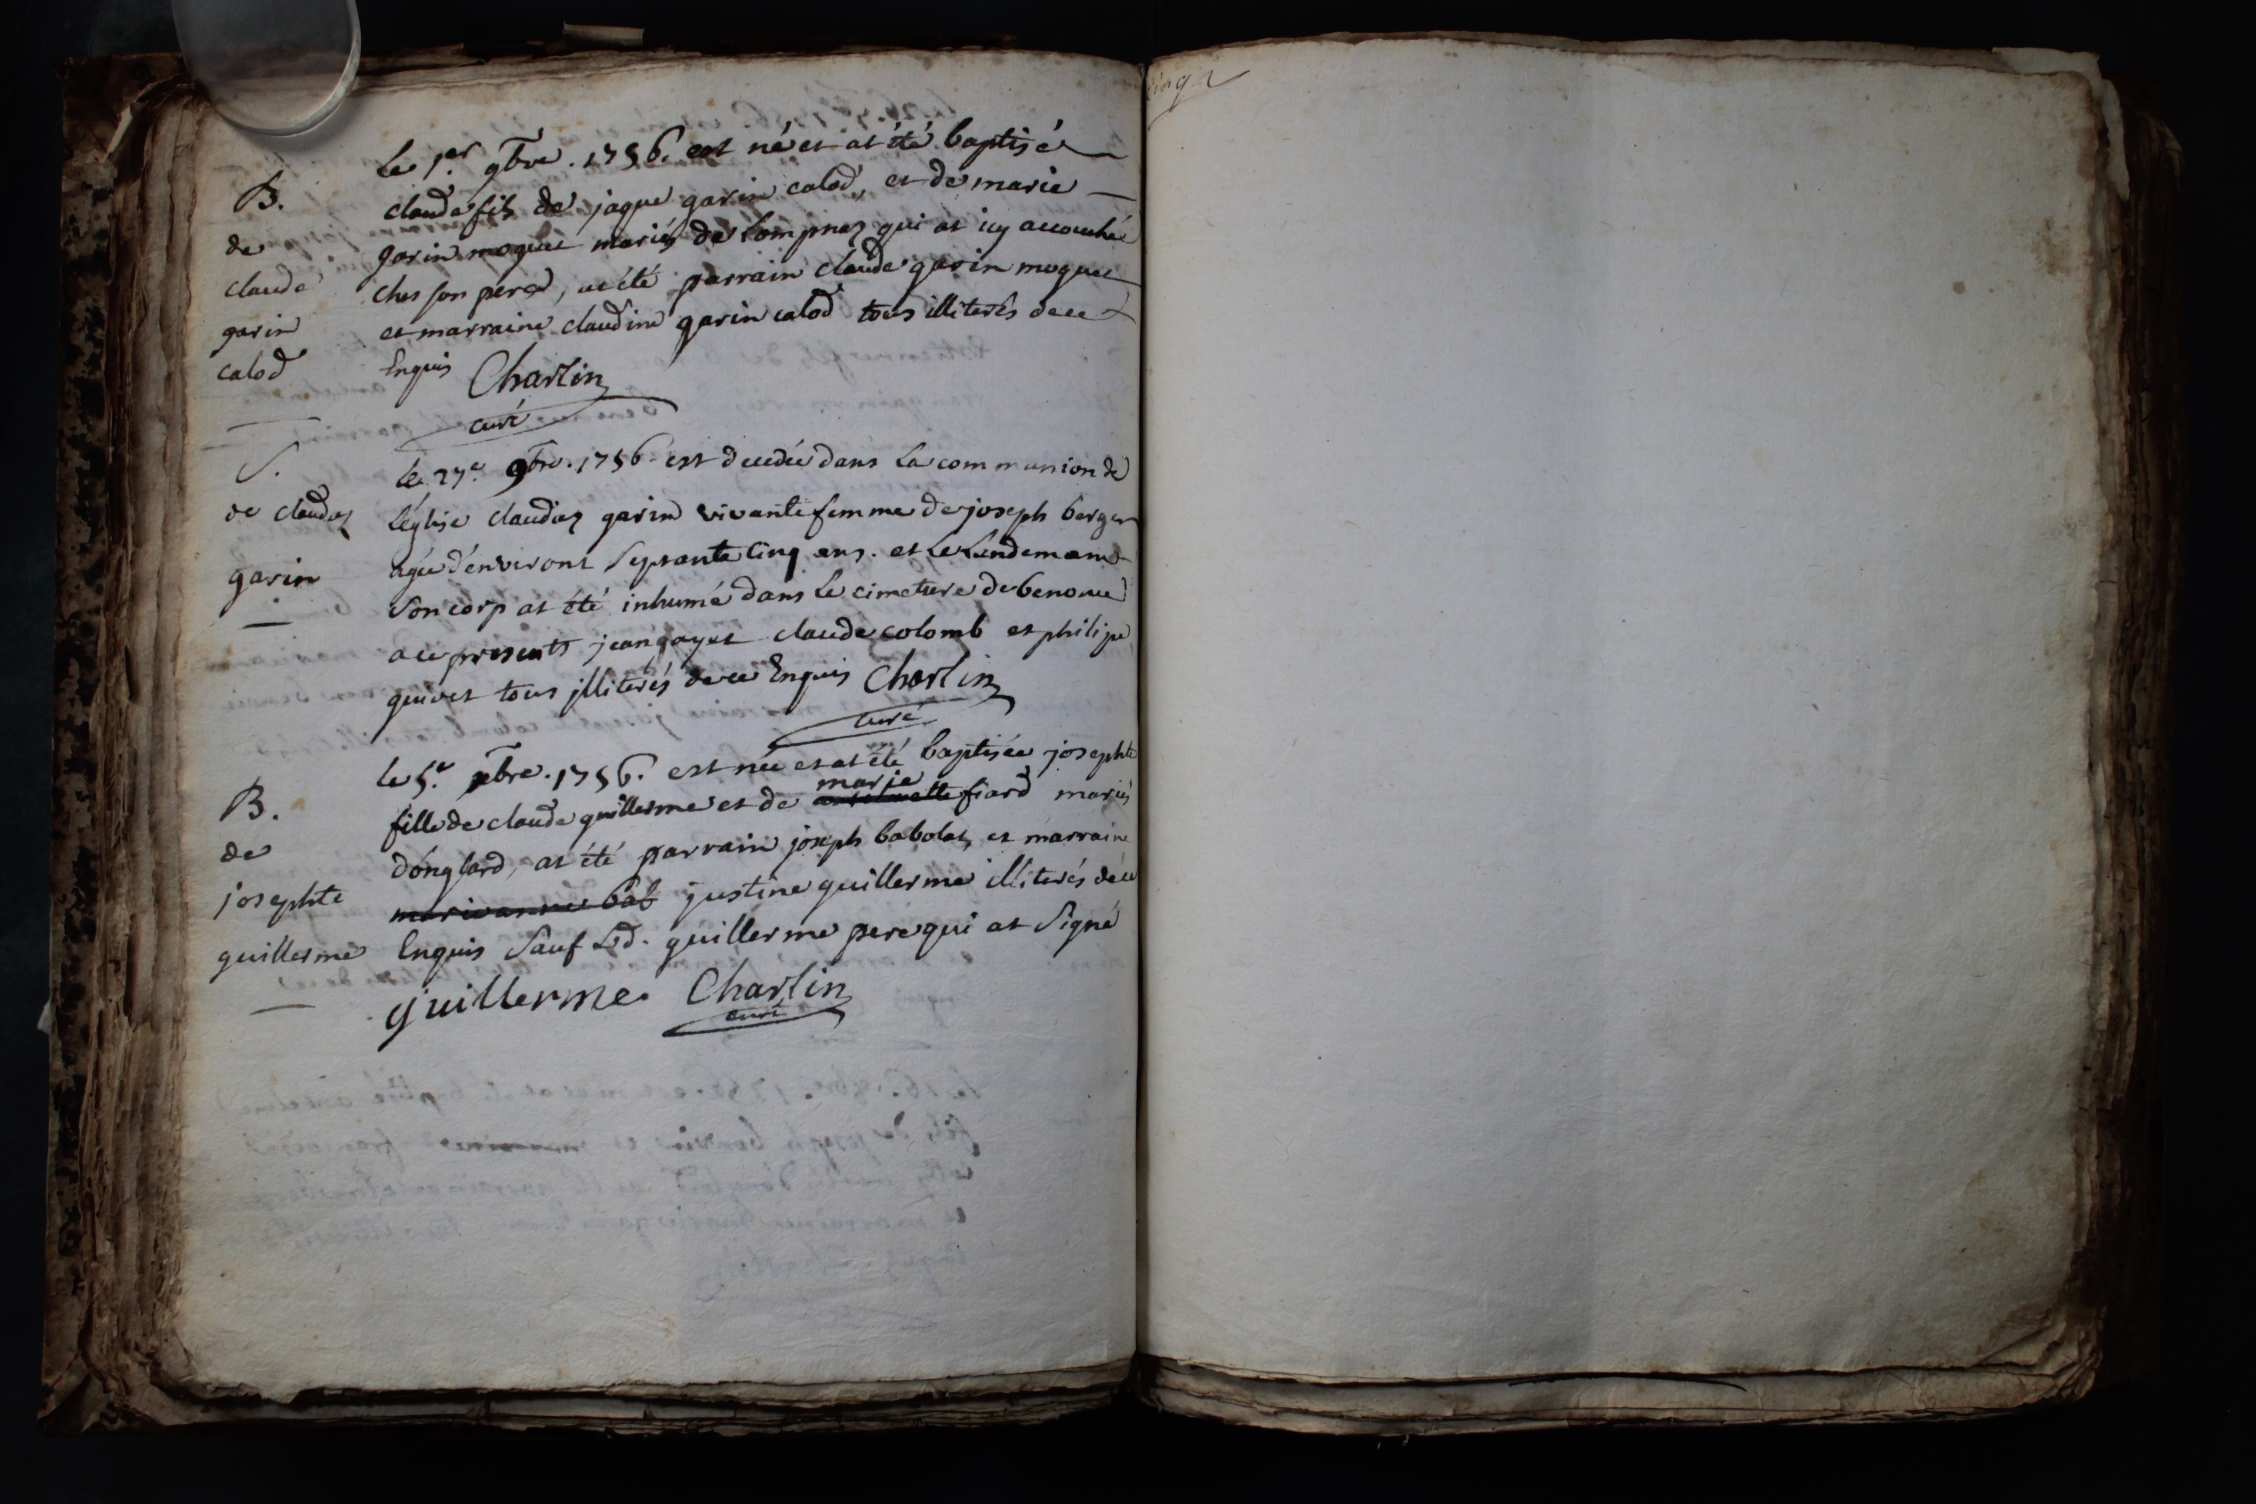 B.
de
claude
garin
calod
le 1.er 9bre. 1756. est né et at été baptisé
claude fils de jaque garin calod, et de marie
garin moquet mariés de Lompnaz qui at icy accouchée
ches son pere, at été parrain claude garin moquet
et marraine claudine garin calod tous illiterés de ce
Enquis Charlin
curé
S.
de claudaz
garin
le 27.e 9bre. 1756 est decedée dans la communion de
L'église claudaz garin vivante femme de joseph berger
agée d'environt Septante Cinq ans. et Le Lendemain
Son corp at été inhumé dans Le cimetiere de benonce
a ce presents jean gayet claude colomb et philipe
quivet tous jlliterés de ce Enquis Charlin
curé
B.
de
josephte
guillerme
le 5.e bre. 1756. est née et at été baptisée josephte
marie
fille de claude guillerme et de fiard mariés
d'onglard, at été parrain joseph babolat, et marraine
marivanne bab justine guillerme illiterés de ce
Enquis Sauf Led. guillerme pere qui at Signé
guillerme. Charlin
curé